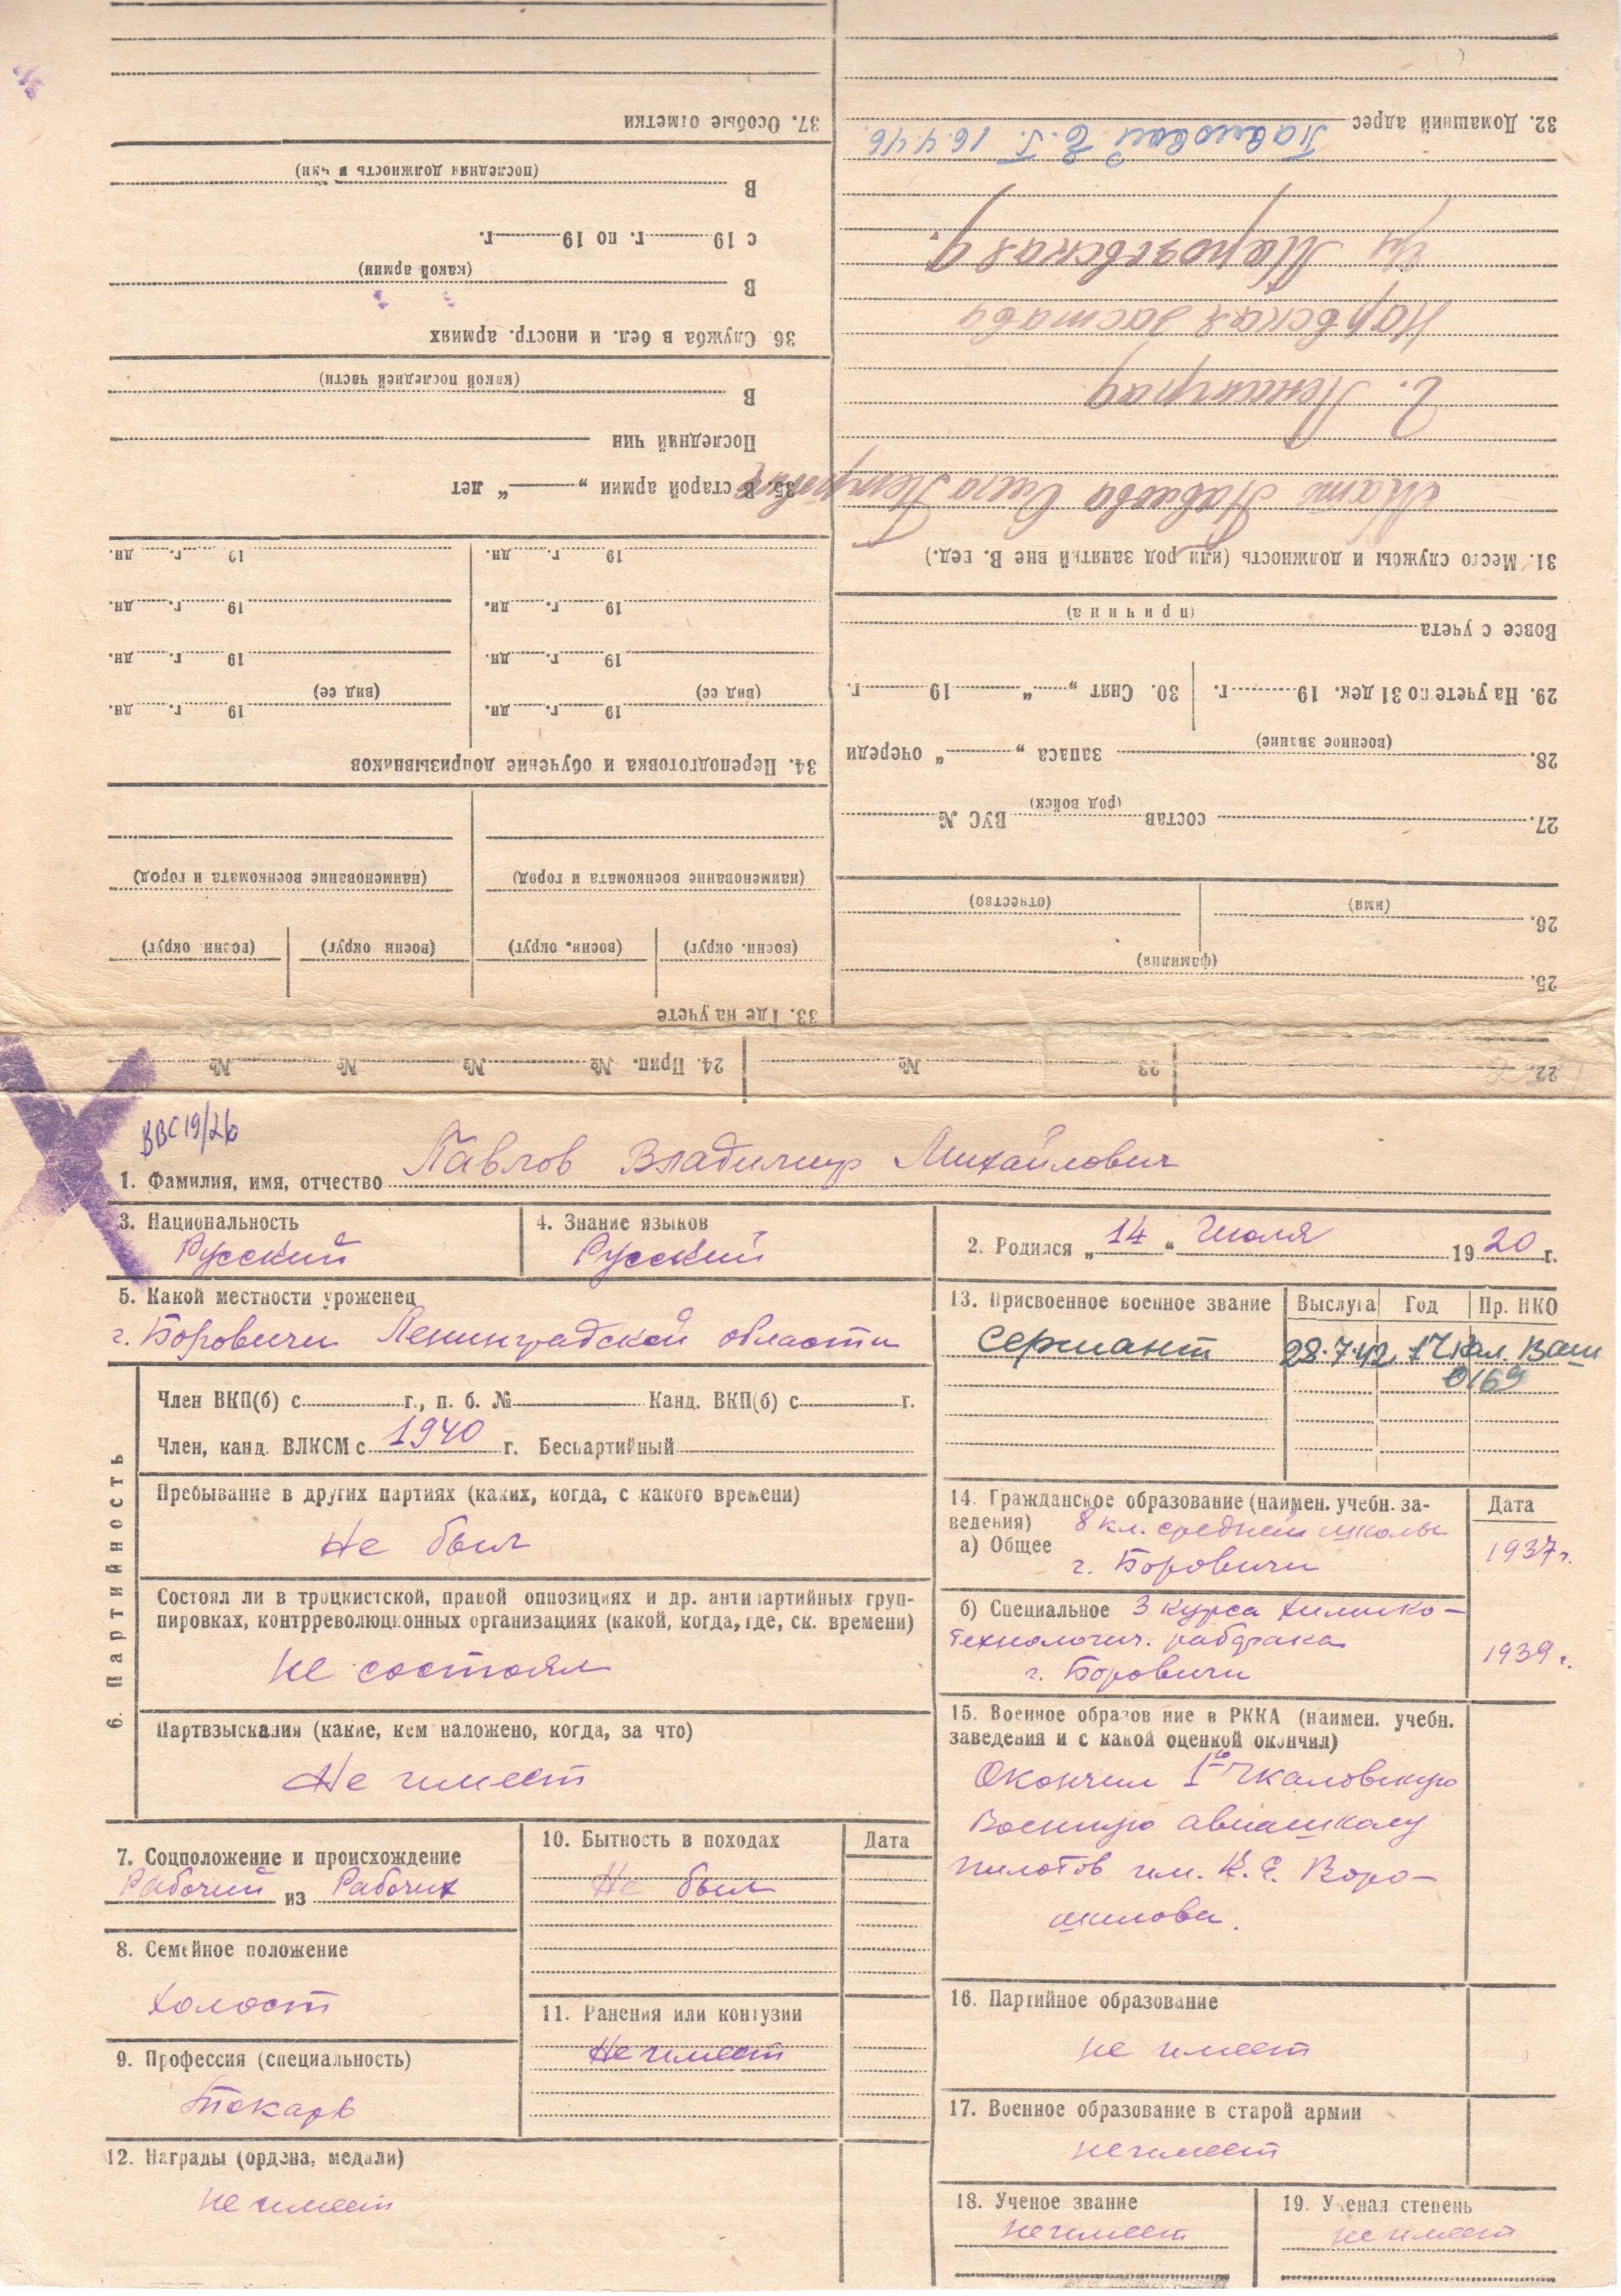 ВВС 19/26
1. Фамилия, имя, отчество Павлов Владимир Михайлович
3. Национальность
Русский
4. Знание языков
Русский
2. Родился „ 14 “ Июля 1920 г.
5. Какой местности уроженец
г. Боровичи Ленинградской области
6. Партийность
Член ВКП(б) с г., п. б. № Канд. ВКП(б) с г.
Член, канд. ВЛКСМ с 1940 г. Беспартийный
Пребывание в других партиях (каких, когда, с какого времени)
Не был
Состоял ли в троцкистской, правой оппозициях и др. антипартийных груп-
пировках, контрреволюционных организациях (какой, когда, где, ск. времени)
Не состоял
Партвзыскания (какие, кем наложено, когда, за что)
Не имеет
7. Соцположение и происхождение
Рабочий из Рабочих
8. Семейное положение
Холост
9. Профессия (специальность)
Токарь
10. Бытность в походах
Дата
Не был
11. Ранения или контузии
Не имеет
12. Награды (ордена, медали)
Не имеет
13. Присвоенное военное звание
Выслуга
Год
Пр. НКО
Сержант 28.7.42 1 Чкал. Вашп
0169
14. Гражданское образование (наимен. учебн. за-
ведения)
Дата
а) Общее 8 кл. средней школы
г. Боровичи
1937 г.
б) Специальное 3 курса химико-
технологич. рабфака
г. Боровичи
1939 г.
15. Военное образование в РККА (наимен. учебн.
заведения и с какой оценкой окончил)
Окончил 1ю Чкаловскую
Военную авиашколу
пилотов им. К. Е. Воро-
шилова.
16. Партийное образование
не имеет
17. Военное образование в старой армии
не имеет
18. Ученое звание
не имеет
19. Ученая степень
не имеет
22.
23 №
24. Прип. № № № №
25.
(фамилия)
26.
(имя) (отчество)
27. состав ВУС №
(род войск)
28. запаса „ “ очереди
(военное звание)
29. На учете по 31 дек. 19 г.
30. Снят „ “ 19 г.
Вовсе с учета
(причина)
31. Место службы и должность (или род занятий вне В. вед.)
Мать Павлова Петровна
г. Ленинград
Нарвская застава
ул
32. Домашний адрес
Павловой Е. Г. 16.4.46.
33. Где на учете
(воен. округ) (воен. округ) (воен округ) (воен округ)
(наименование военкомата и город) (наименование военкомата и город)
34. Переподготовка и обучение допризывников
19 г. дн. 19 г. дн.
(вид ее) (вид ее)
19 г. дн. 19 г. дн.
19 г. дн. 19 г. дн.
19 г. дн. 19 г. дн.
35. В старой армии „ “ лет
Последний чин
В
(какой последней части)
36 Служба в бел. и иностр. армиях
В
(какой армии)
с 19 г. по 19 г.
В
(последняя должность и чин)
37. Особые отметки